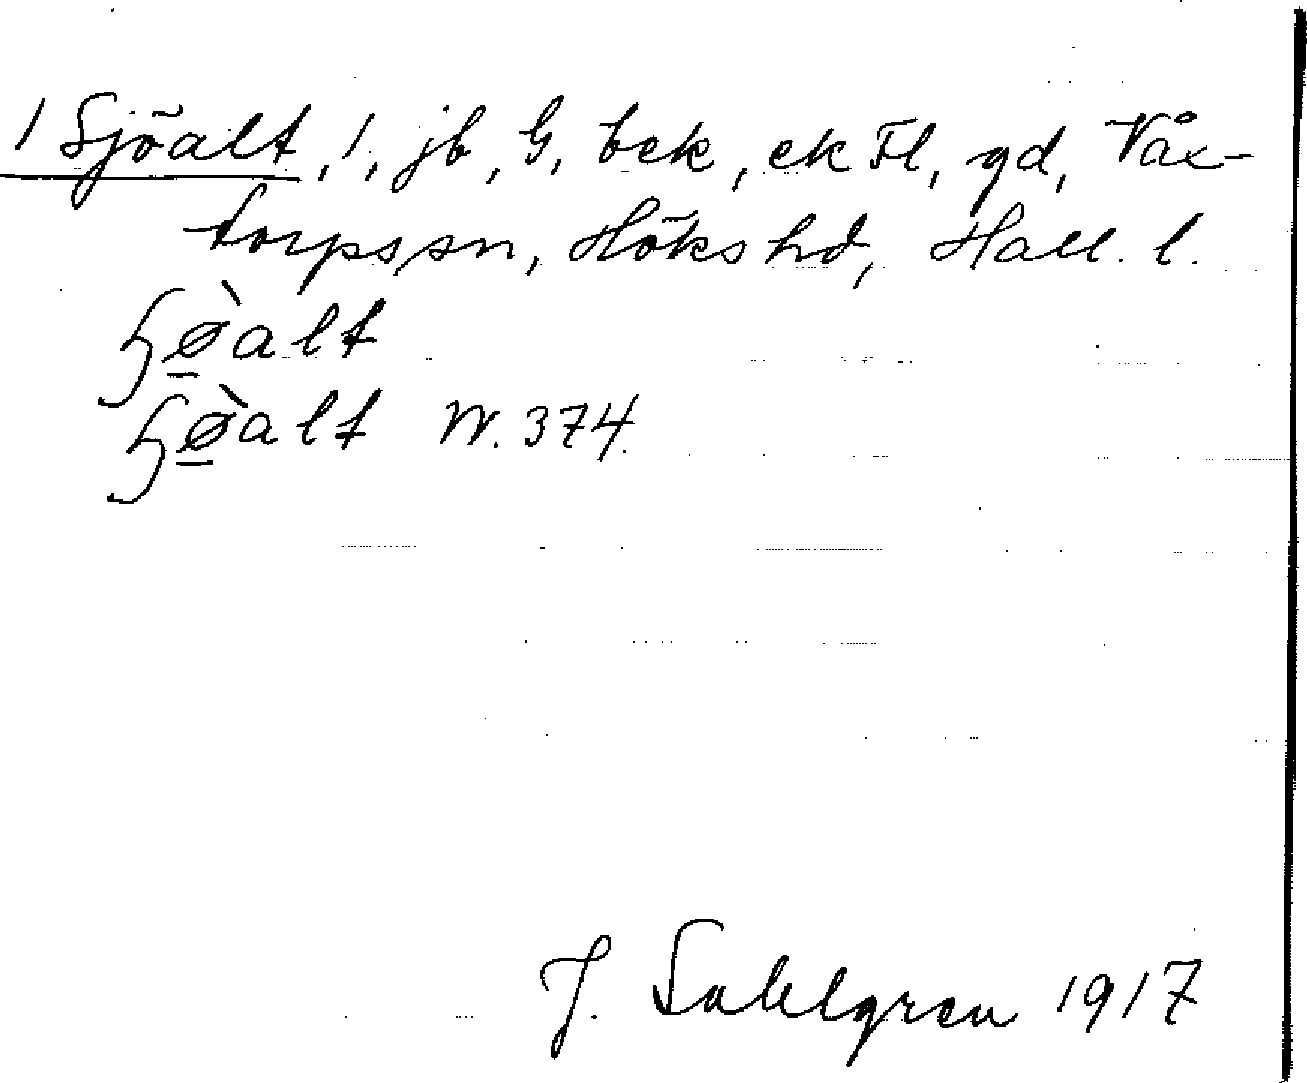 1 Sjöalt, 1, jb, G, bek, ek Fl, gd, Våx-
torps sn, Höks hd, Hall. l.
ɧø̠̀alt
ɧø̠̀alt W. 374.
J. Sahlgren 1917